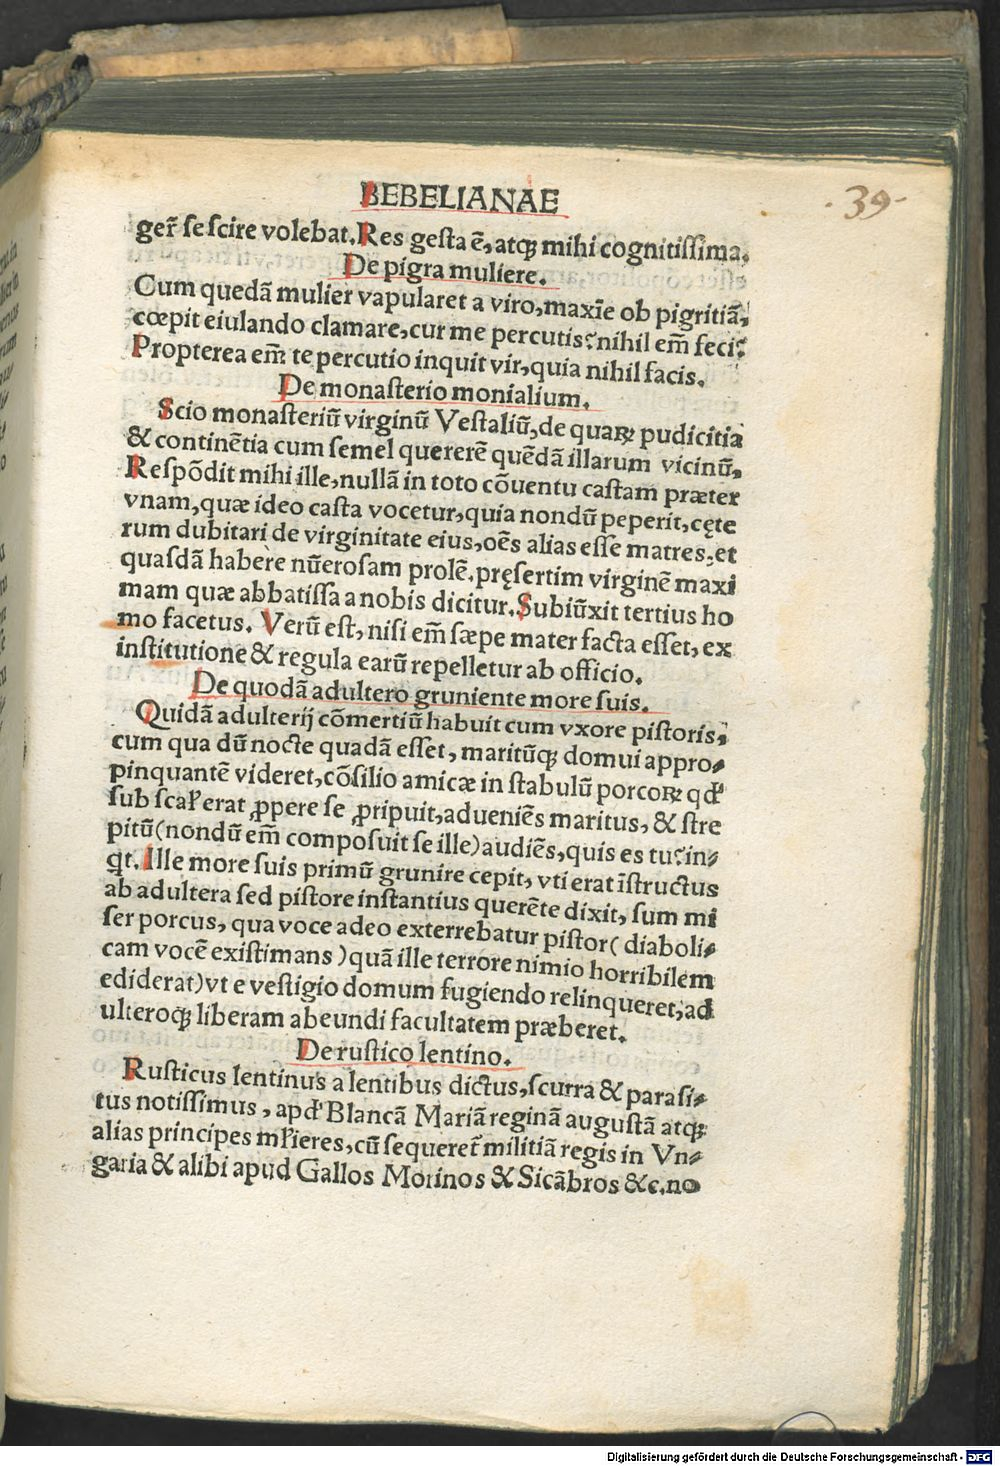 BEBELIANAE
·39·
ger̃ se scire volebat. Res gesta ē, atqꝫ mihi cognitissima.
De pigra muliere.
Cum quedā mulier vapularet a viro, maxīe ob pigritiā,
cœpit eiulando clamare, cur me percutis? nihil em̄ feci?
Propterea em̄ te percutio inquit vir, quia nihil facis.
De monasterio monialium.
Scio monasteriū virginū Vestaliū, de quaꝝ pudicitia
& continētia cum semel quererē quēdā illarum vicinū,
Respōdit mihi ille, nullā in toto cōuentu castam præter
vnam, quæ ideo casta vocetur, quia nondū peperit, cęte
rum dubitari de virginitate eius, oēs alias esse matres, et
quasdā habere nūerosam prolē. pręsertim virginē maxi
mam quæ abbatissa a nobis dicitur. Subiūxit tertius ho
mo facetus. Verū est, nisi em̄ sæpe mater facta esset, ex
institutione & regula earū repelletur ab officio.
De quodā adultero gruniente more suis.
Quidā adulterij cōmertiū habuit cum vxore pistoris,
cum qua dū nocte quadā esset, maritūqꝫ domui appro-
pinquantē videret, cōsilio amicæ in stabulū porcoꝝ qd'
sub scal' erat ꝓpere se ꝓripuit, adueniēs maritus, & stre
pitū (nondū em̄ composuit se ille) audiēs, quis es tu? in-
q̇t. Ille more suis primū grunire cepit, vti erat īstructus
ab adultera sed pistore instantius querēte dixit, sum mi
ser porcus, qua voce adeo exterrebatur pistor (diaboli-
cam vocē existimans) quā ille terrore nimio horribilem
ediderat) vt e vestigio domum fugiendo relinqueret, ad
ulteroqꝫ liberam abeundi facultatem præberet.
De rustico lentino.
Rusticus lentinus a lentibus dictus, scurra & parasi-
tus notissimus, apd' Blancā Mariā reginā augustā atqꝫ
alias principes ml'ieres, cū sequeret̃ militiā regis in Vn-
garia & alibi apud Gallos Morinos & Sicābros &c. no
Digitalisierung gefördert durch die Deutsche Forschungsgemeinschaft - DFG